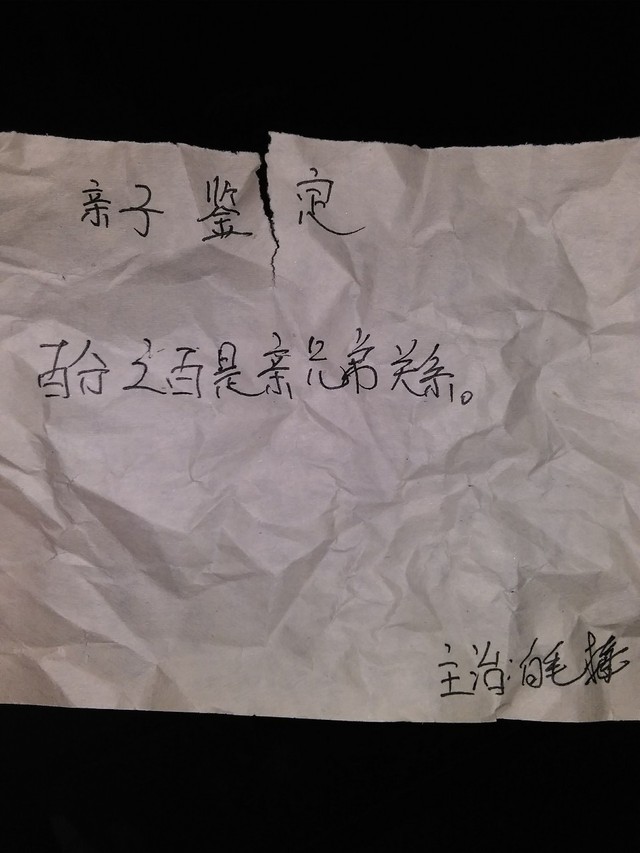 亲子鉴定
百分之百是亲兄弟关系。
主治:白毛